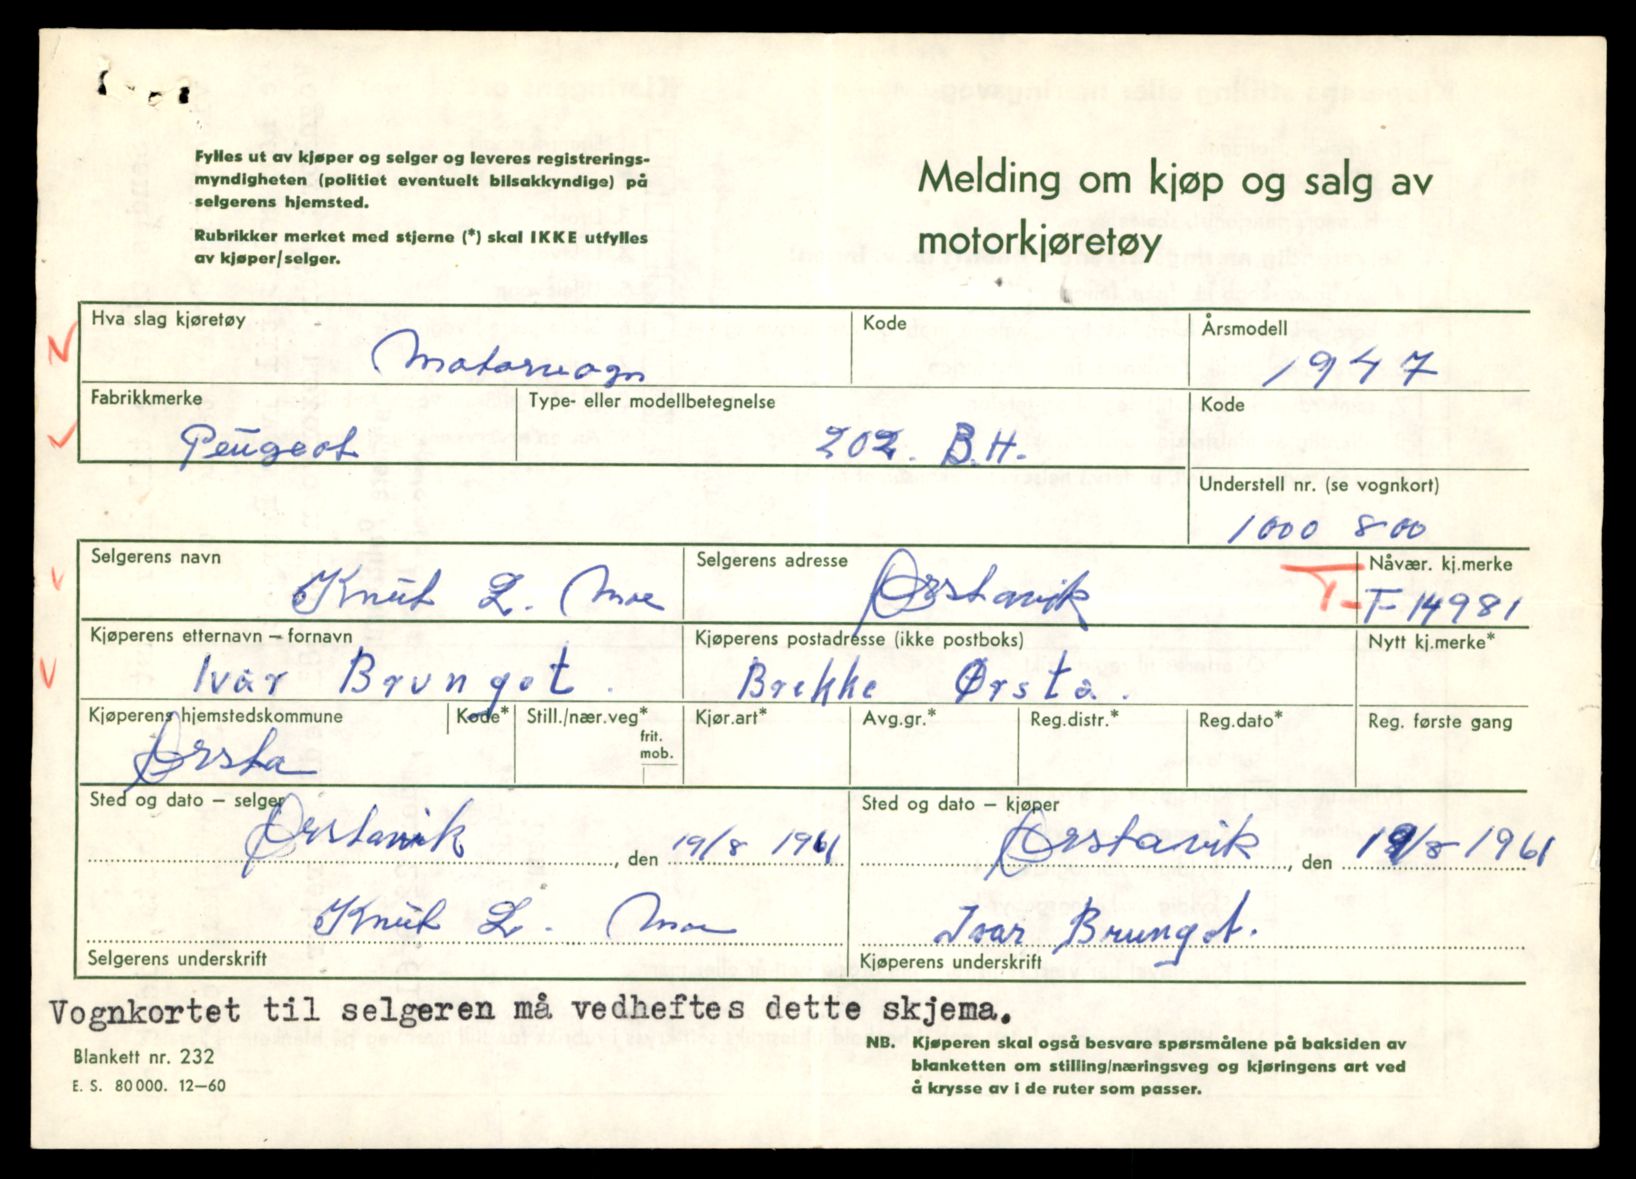 Fylles ut av kjøper og selger og leveres registrerings-
myndigheten (politiet eventuelt bilsakkyndige) på
selgerens hjemsted.
Rubrikker merket med stjerne (*) skal IKKE utfylles
av kjøper/selger.
Melding om kjøp og salg av
motorkjøretøy
Hva slag kjøretøy
Kode
Årsmodell
Motorvogn
1947
Fabrikkmerke
Type- eller modellbetegnelse
Kode
Peugeot
202. B.H.
Understell nr. (se vognkort)
1000 800
Selgerens navn
Selgerens adresse
Nåvær. kj.merke
Knut L. Moe
Ørstavik
T-
T-14981
Kjøperens etternavn – fornavn
Kjøperens postadresse (ikke postboks)
Nytt kj.merke*
Ivar Brungot.
Brekke Ørsta.
Kjøperens hjemstedskommune
Kode*
Still./nær.veg*
frit.
mob.
Kjør.art*
Avg.gr.*
Reg.distr.*
Reg.dato*
Reg. første gang
Ørsta
Sted og dato – selger
Sted og dato – kjøper
Ørstavik, den 19/8 1961
Ørstavik, den 19/8-1961
Knut L. Moe
Ivar Brungot.
Selgerens underskrift
Kjøperens underskrift
Vognkortet til selgeren må vedheftes dette skjema.
Blankett nr. 232
E. S. 80 000. 12–60
NB. Kjøperen skal også besvare spørsmålene på baksiden av
blanketten om stilling/næringsveg og kjøringens art ved
å krysse av i de ruter som passer.